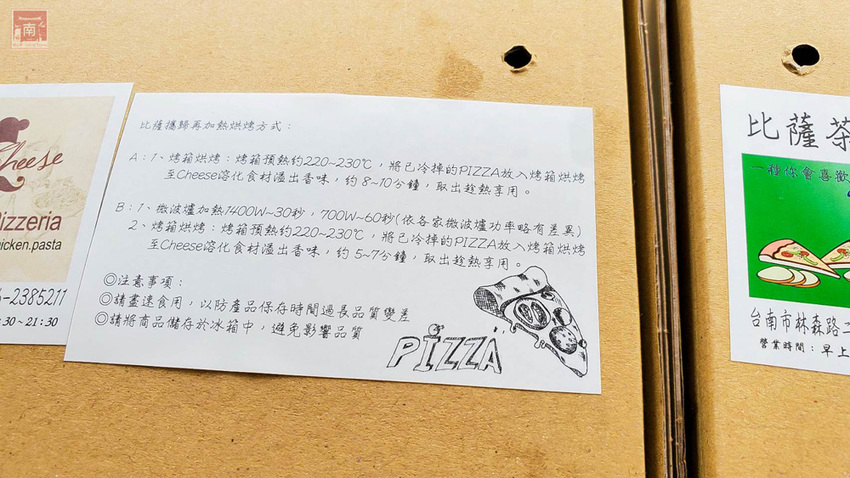 南
Cheese
izzeria
icken.pasta
-2385211
:30~21:30
比薩攜歸再加熱烘烤方式:
A:1、烤箱烘烤:烤箱預熱約220~230℃,將已冷掉的PIZZA放入烤箱烘烤
至Cheese溶化食材溢出香味,約8~10分鐘,取出趁熱享用。
B:1、微波爐加熱1400W~30秒,700W~60秒(依各家微波爐功率略有差異)
2、烤箱烘烤:烤箱預熱約220~230℃,將已冷掉的PIZZA放入烤箱烘烤
至Cheese溶化食材溢出香味,約5~7分鐘,取出趁熱享用。
◎注意事項:
◎請盡速食用,以防產品保存時間過長品質變差
◎請將商品儲存於冰箱中,避免影響品質
PIZZA
比薩茶
一種你會喜歡
台南市林森路二
營業時間:早上